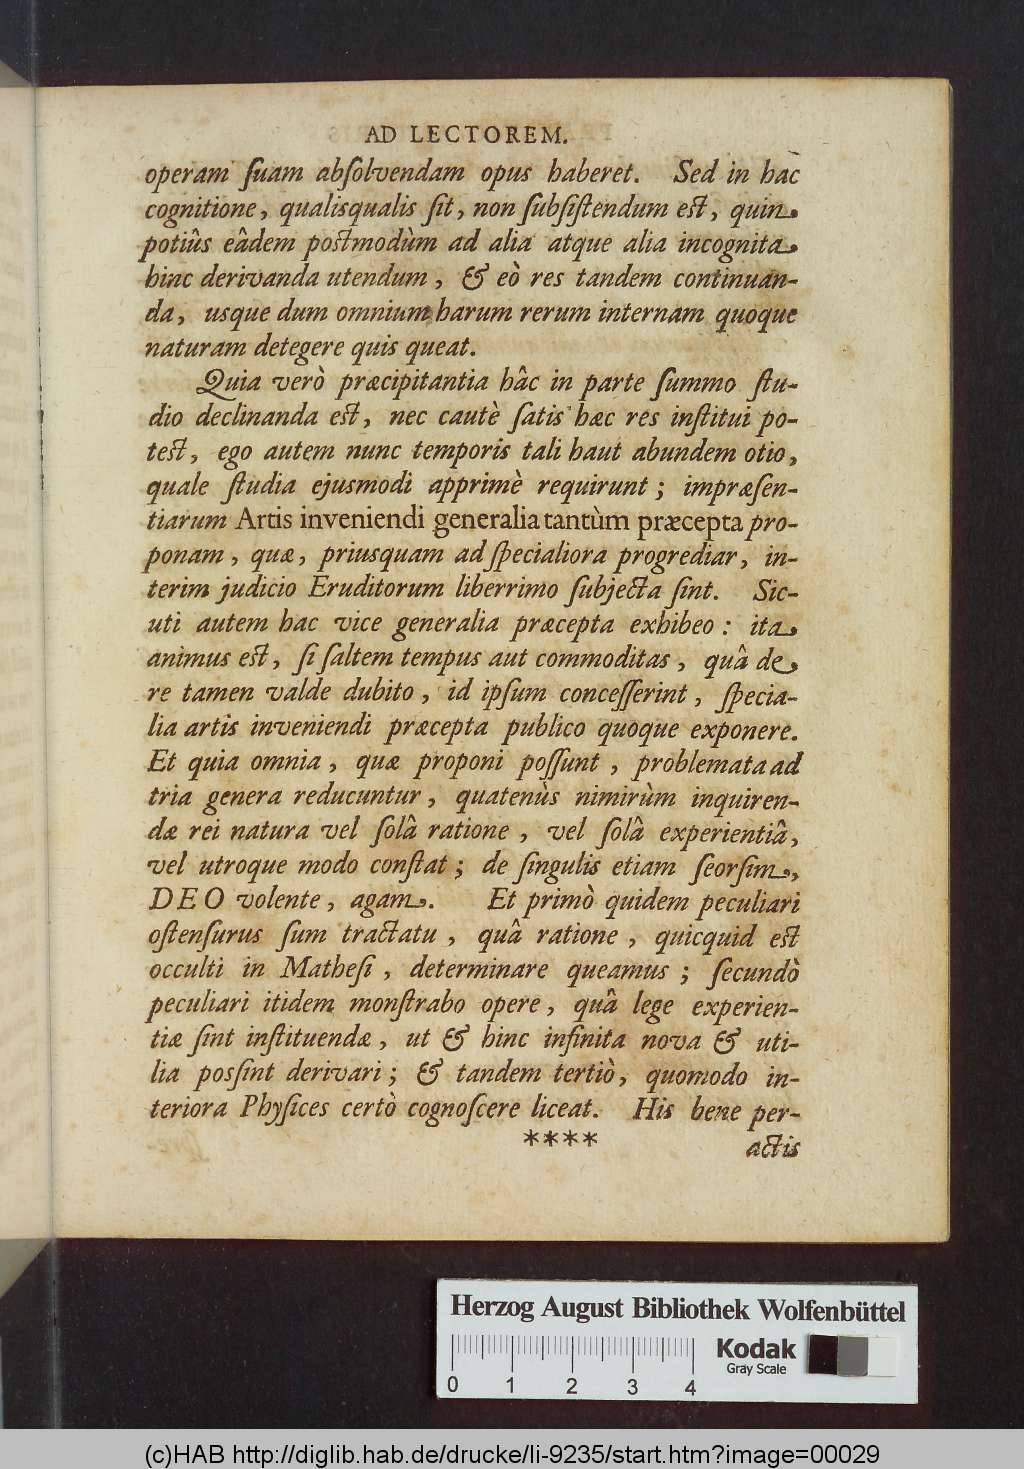 AD LECTOREM.
operam ſuam abſolvendam opus haberet. Sed in hac
cognitione, qualisqualis ſit, non ſubſiſtendum eſt, quin
potiùs eâdem poſtmodùm ad alia atque alia incognita
hinc derivanda utendum, & eò res tandem continuan-
da, usque dum omnium harum rerum internam quoque
naturam detegere quis queat.
Quia verò præcipitantia hâc in parte ſummo ſtu-
dio declinanda eſt, nec cautè ſatis hæc res inſtitui po-
teſt, ego autem nunc temporis tali haut abundem otio,
quale ſtudia ejusmodi apprimè requirunt; impræſen-
tiarum Artis inveniendi generalia tantùm præcepta pro-
ponam, quæ, priusquam ad ſpecialiora progrediar, in-
terim judicio Eruditorum liberrimo ſubjecta ſint. Sic-
uti autem hac vice generalia præcepta exhibeo: ita
animus eſt, ſi ſaltem tempus aut commoditas, quâ de
re tamen valde dubito, id ipſum conceſſerint, ſpecia-
lia artis inveniendi præcepta publico quoque exponere.
Et quia omnia, quæ proponi poſſunt, problemata ad
tria genera reducuntur, quatenùs nimirùm inquiren-
dæ rei natura vel ſolâ ratione, vel ſolâ experientiâ,
vel utroque modo conſtat; de ſingulis etiam ſeorſim,
DEO volente, agam. Et primò quidem peculiari
oſtenſurus ſum tractatu, quâ ratione, quicquid eſt
occulti in Matheſi, determinare queamus; ſecundò
peculiari itidem monſtrabo opere, quâ lege experien-
tiæ ſint inſtituendæ, ut & hinc infinita nova & uti-
lia posſint derivari; & tandem tertiò, quomodo in-
teriora Phyſices certò cognoſcere liceat. His bene per-
**** actis
Herzog August Bibliothek Wolfenbüttel
Kodak
Gray Scale
0 1 2 3 4
(c)HAB http://diglib.hab.de/drucke/li-9235/start.htm?image=00029